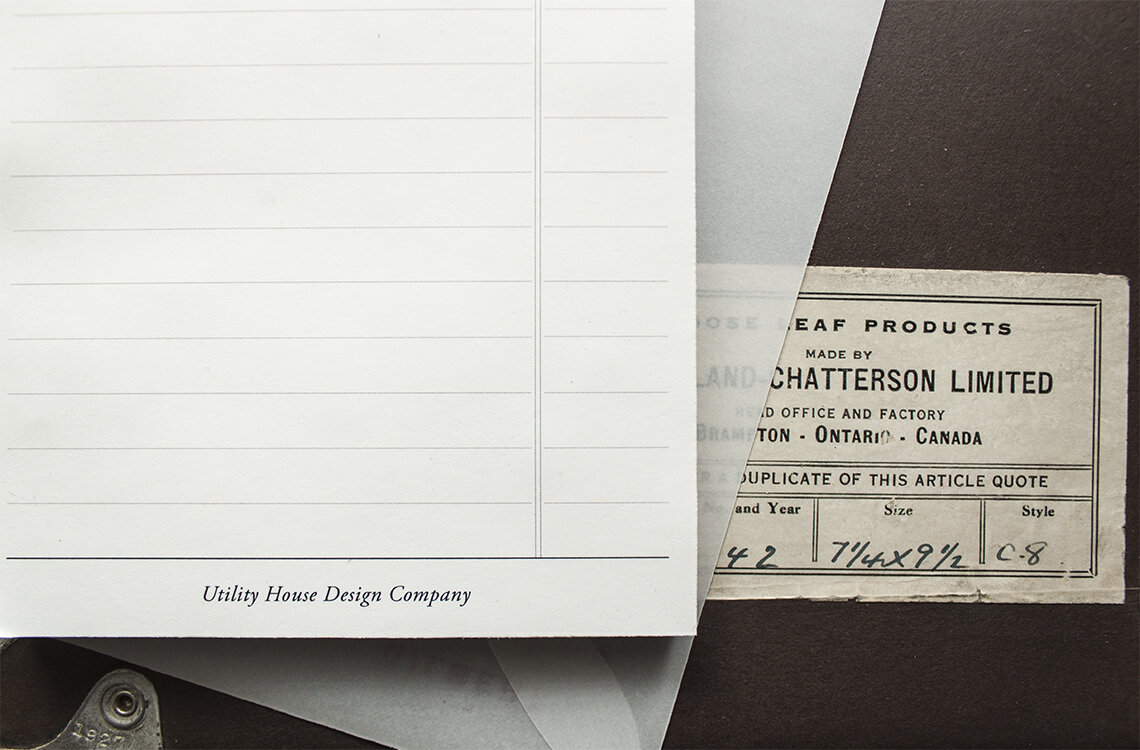 Utility House Design Company
OOSE LEAF PRODUCTS
MADE BY
LAND-CHATTERSON LIMITED
HEAD OFFICE AND FACTORY
BRAMPTON - ONTARIO - CANADA
R A DUPLICATE OF THIS ARTICLE QUOTE
No. and Year Size Style
42 7 1/4 X 9 1/2 C-8
1927